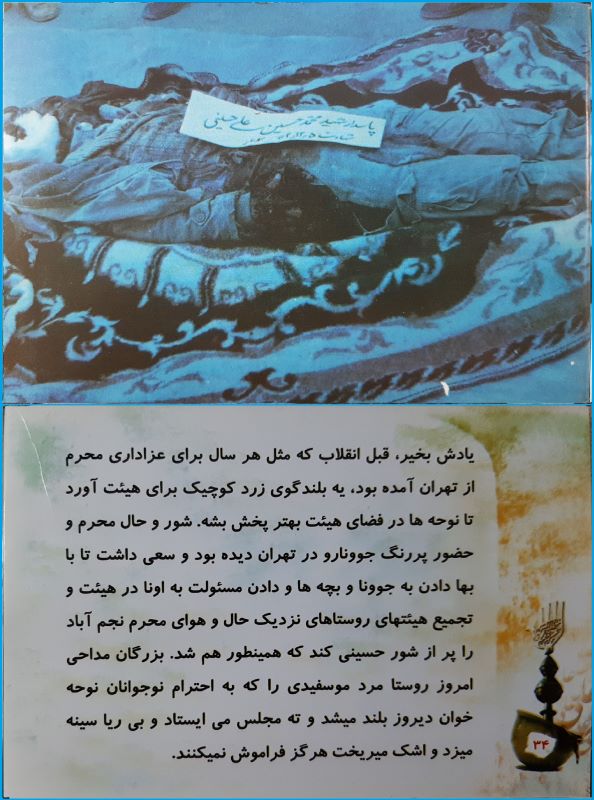 پاسدار شهید محمد حسین علی حسینی
یادش بخیر، قبل انقلاب که مثل هر سال برای عزاداری محرم
از تهران آمده بود، یه بلندگوی زرد کوچیک برای هیئت آورد
تا نوحه ها در فضای هیئت بهتر پخش بشه. شور و حال محرم و
حضور پررنگ جوونارو در تهران دیده بود و سعی داشت تا با
بها دادن به جوونا و بچه ها و دادن مسئولت به اونا در هیئت و
تجمیع هیئتهای روستاهای نزدیک حال و هوای محرم نجم آباد
را پر از شور حسینی کند که همینطور هم شد. بزرگان مداحی
امروز روستا مرد موسفیدی را که به احترام نوجوانان نوحه
خوان دیروز بلند میشد و ته مجلس می ایستاد و بی ریا سینه
میزد و اشک میریخت هرگز فراموش نمیکنند.
۳۴